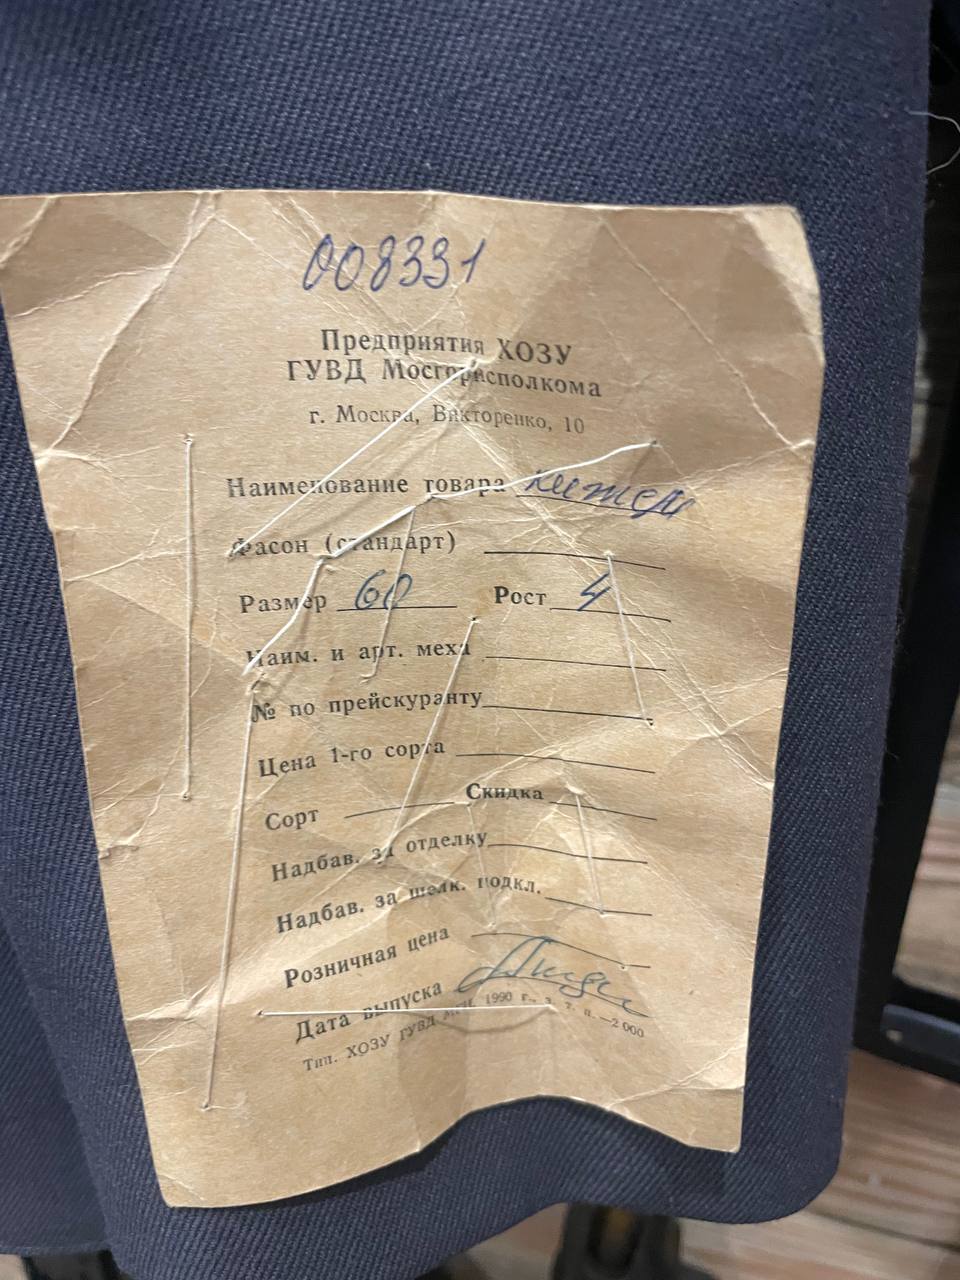 008331
Предприятия ХОЗУ
ГУВД Мосгорисполкома
г. Москва, Викторенко, 10
Наименование товара китель
Фасон (стандарт)
Размер 60 Рост 4
Наим. и арт. меха
№ по прейскуранту
Цена 1-го сорта
Сорт Скидка
Надбав. за отделку
Надбав. за шелк. подкл.
Розничная цена
Дата выпуска
Тип. ХОЗУ ГУВД МГИ, 1990 г., з. т. п.—2 000